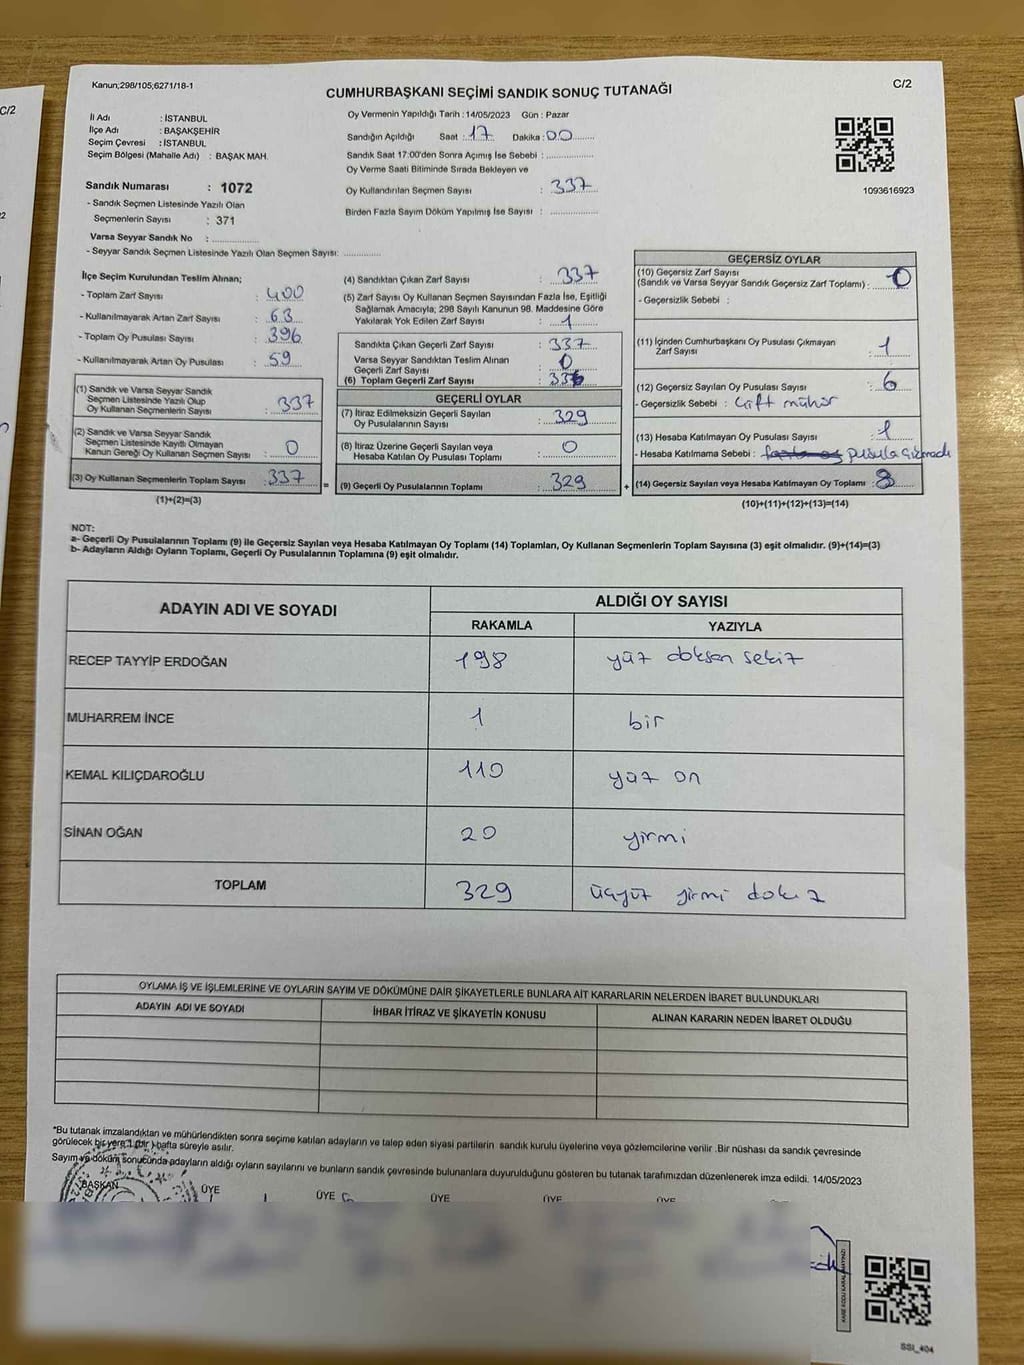 Kanun;298/105;6271/18-1
C/2
CUMHURBAŞKANI SEÇİMİ SANDIK SONUÇ TUTANAĞI
İl Adı : İSTANBUL
İlçe Adı : BAŞAKŞEHİR
Seçim Çevresi : İSTANBUL
Seçim Bölgesi (Mahalle Adı) : BAŞAK MAH.
Sandık Numarası : 1072
- Sandık Seçmen Listesinde Yazılı Olan
Seçmenlerin Sayısı : 371
Varsa Seyyar Sandık No : ..............
- Seyyar Sandık Seçmen Listesinde Yazılı Olan Seçmen Sayısı: ............
Oy Vermenin Yapıldığı Tarih :14/05/2023 Gün : Pazar
Sandığın Açıldığı Saat : 17 Dakika : 00
Sandık Saat 17:00'den Sonra Açımış İse Sebebi : ..............
Oy Verme Saati Bitiminde Sırada Bekleyen ve
Oy Kullandırılan Seçmen Sayısı : 337
Birden Fazla Sayım Döküm Yapılmış İse Sayısı : ..............
1093616923
İlçe Seçim Kurulundan Teslim Alınan;
- Toplam Zarf Sayısı : 400
- Kullanılmayarak Artan Zarf Sayısı : 63
- Toplam Oy Pusulası Sayısı : 396
- Kullanılmayarak Artan Oy Pusulası : 59
(1) Sandık ve Varsa Seyyar Sandık
Seçmen Listesinde Yazılı Olup
Oy Kullanan Seçmenlerin Sayısı : 337
(2) Sandık ve Varsa Seyyar Sandık
Seçmen Listesinde Kayıtlı Olmayan
Kanun Gereği Oy Kullanan Seçmen Sayısı : 0
(3) Oy Kullanan Seçmenlerin Toplam Sayısı : 337
(1)+(2)=(3)
(4) Sandıktan Çıkan Zarf Sayısı : 337
(5) Zarf Sayısı Oy Kullanan Seçmen Sayısından Fazla İse, Eşitliği
Sağlamak Amacıyla; 298 Sayılı Kanunun 98. Maddesine Göre
Yakılarak Yok Edilen Zarf Sayısı : 1
Sandıkta Çıkan Geçerli Zarf Sayısı : 337
Varsa Seyyar Sandıktan Teslim Alınan
Geçerli Zarf Sayısı : 0
(6) Toplam Geçerli Zarf Sayısı :
GEÇERLİ OYLAR
(7) İtiraz Edilmeksizin Geçerli Sayılan
Oy Pusulalarının Sayısı : 329
(8) İtiraz Üzerine Geçerli Sayılan veya
Hesaba Katılan Oy Pusulası Toplamı : 0
= (9) Geçerli Oy Pusulalarının Toplamı : 329 +
GEÇERSİZ OYLAR
(10) Geçersiz Zarf Sayısı
(Sandık ve Varsa Seyyar Sandık Geçersiz Zarf Toplamı) : 0
- Geçersizlik Sebebi :
(11) İçinden Cumhurbaşkanı Oy Pusulası Çıkmayan
Zarf Sayısı : 1
(12) Geçersiz Sayılan Oy Pusulası Sayısı : 6
- Geçersizlik Sebebi : Çift mühür
(13) Hesaba Katılmayan Oy Pusulası Sayısı : 1
- Hesaba Katılmama Sebebi : pusula çıkmadı
(14) Geçersiz Sayılan veya Hesaba Katılmayan Oy Toplamı : 8
(10)+(11)+(12)+(13)=(14)
NOT:
a- Geçerli Oy Pusulalarının Toplamı (9) ile Geçersiz Sayılan veya Hesaba Katılmayan Oy Toplamı (14) Toplamları, Oy Kullanan Seçmenlerin Toplam Sayısına (3) eşit olmalıdır. (9)+(14)=(3)
b- Adayların Aldığı Oyların Toplamı, Geçerli Oy Pusulalarının Toplamına (9) eşit olmalıdır.
ADAYIN ADI VE SOYADI ALDIĞI OY SAYISI
RAKAMLA YAZIYLA
RECEP TAYYİP ERDOĞAN 198 yüz doksan sekiz
MUHARREM İNCE 1 bir
KEMAL KILIÇDAROĞLU 110 yüz on
SİNAN OĞAN 20 yirmi
TOPLAM 329 üçyüz yirmi dokuz
OYLAMA İŞ VE İŞLEMLERİNE VE OYLARIN SAYIM VE DÖKÜMÜNE DAİR ŞİKAYETLERLE BUNLARA AİT KARARLARIN NELERDEN İBARET BULUNDUKLARI
ADAYIN ADI VE SOYADI İHBAR İTİRAZ VE ŞİKAYETİN KONUSU ALINAN KARARIN NEDEN İBARET OLDUĞU
*Bu tutanak imzalandıktan ve mühürlendikten sonra seçime katılan adayların ve talep eden siyasi partilerin sandık kurulu üyelerine veya gözlemcilerine verilir .Bir nüshası da sandık çevresinde
görülecek bir yere 1 (bir ) hafta süreyle asılır.
Sayım ve döküm sonucunda adayların aldığı oyların sayılarını ve bunların sandık çevresinde bulunanlara duyurulduğunu gösteren bu tutanak tarafımızdan düzenlenerek imza edildi. 14/05/2023
BAŞKAN ÜYE ÜYE ÜYE ÜYE ÜYE
SSI_404
C/2